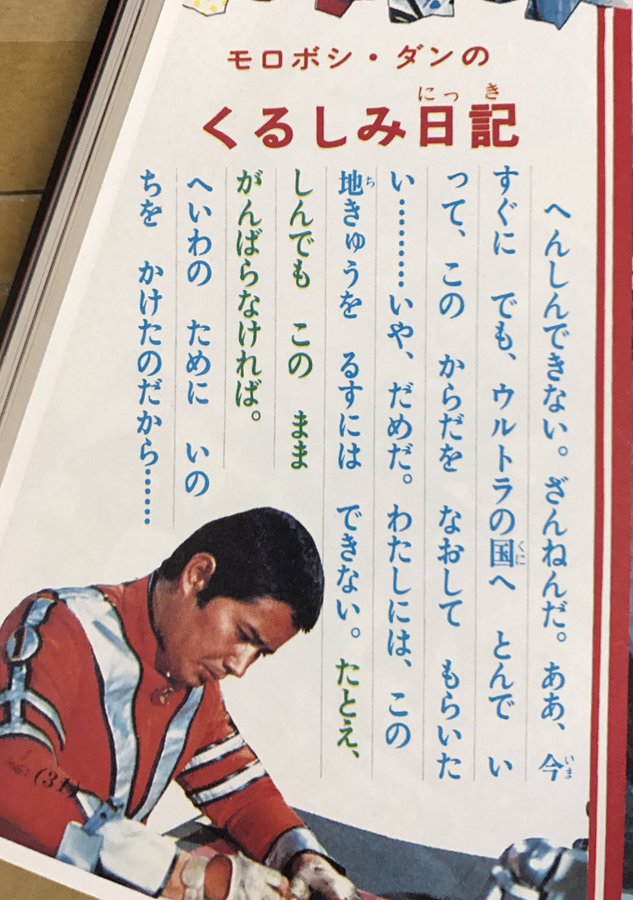 モロボシ・ダンの
くるしみ日記
へんしんできない。ざんねんだ。ああ、今
すぐに でも、ウルトラの国へ とんで い
って、この からだを なおして もらいた
い…………いや、だめだ。わたしには、この
地きゅうを るすには できない。たとえ、
しんでも この まま
がんばらなければ。
へいわの ために いの
ちを かけたのだから……
(31)